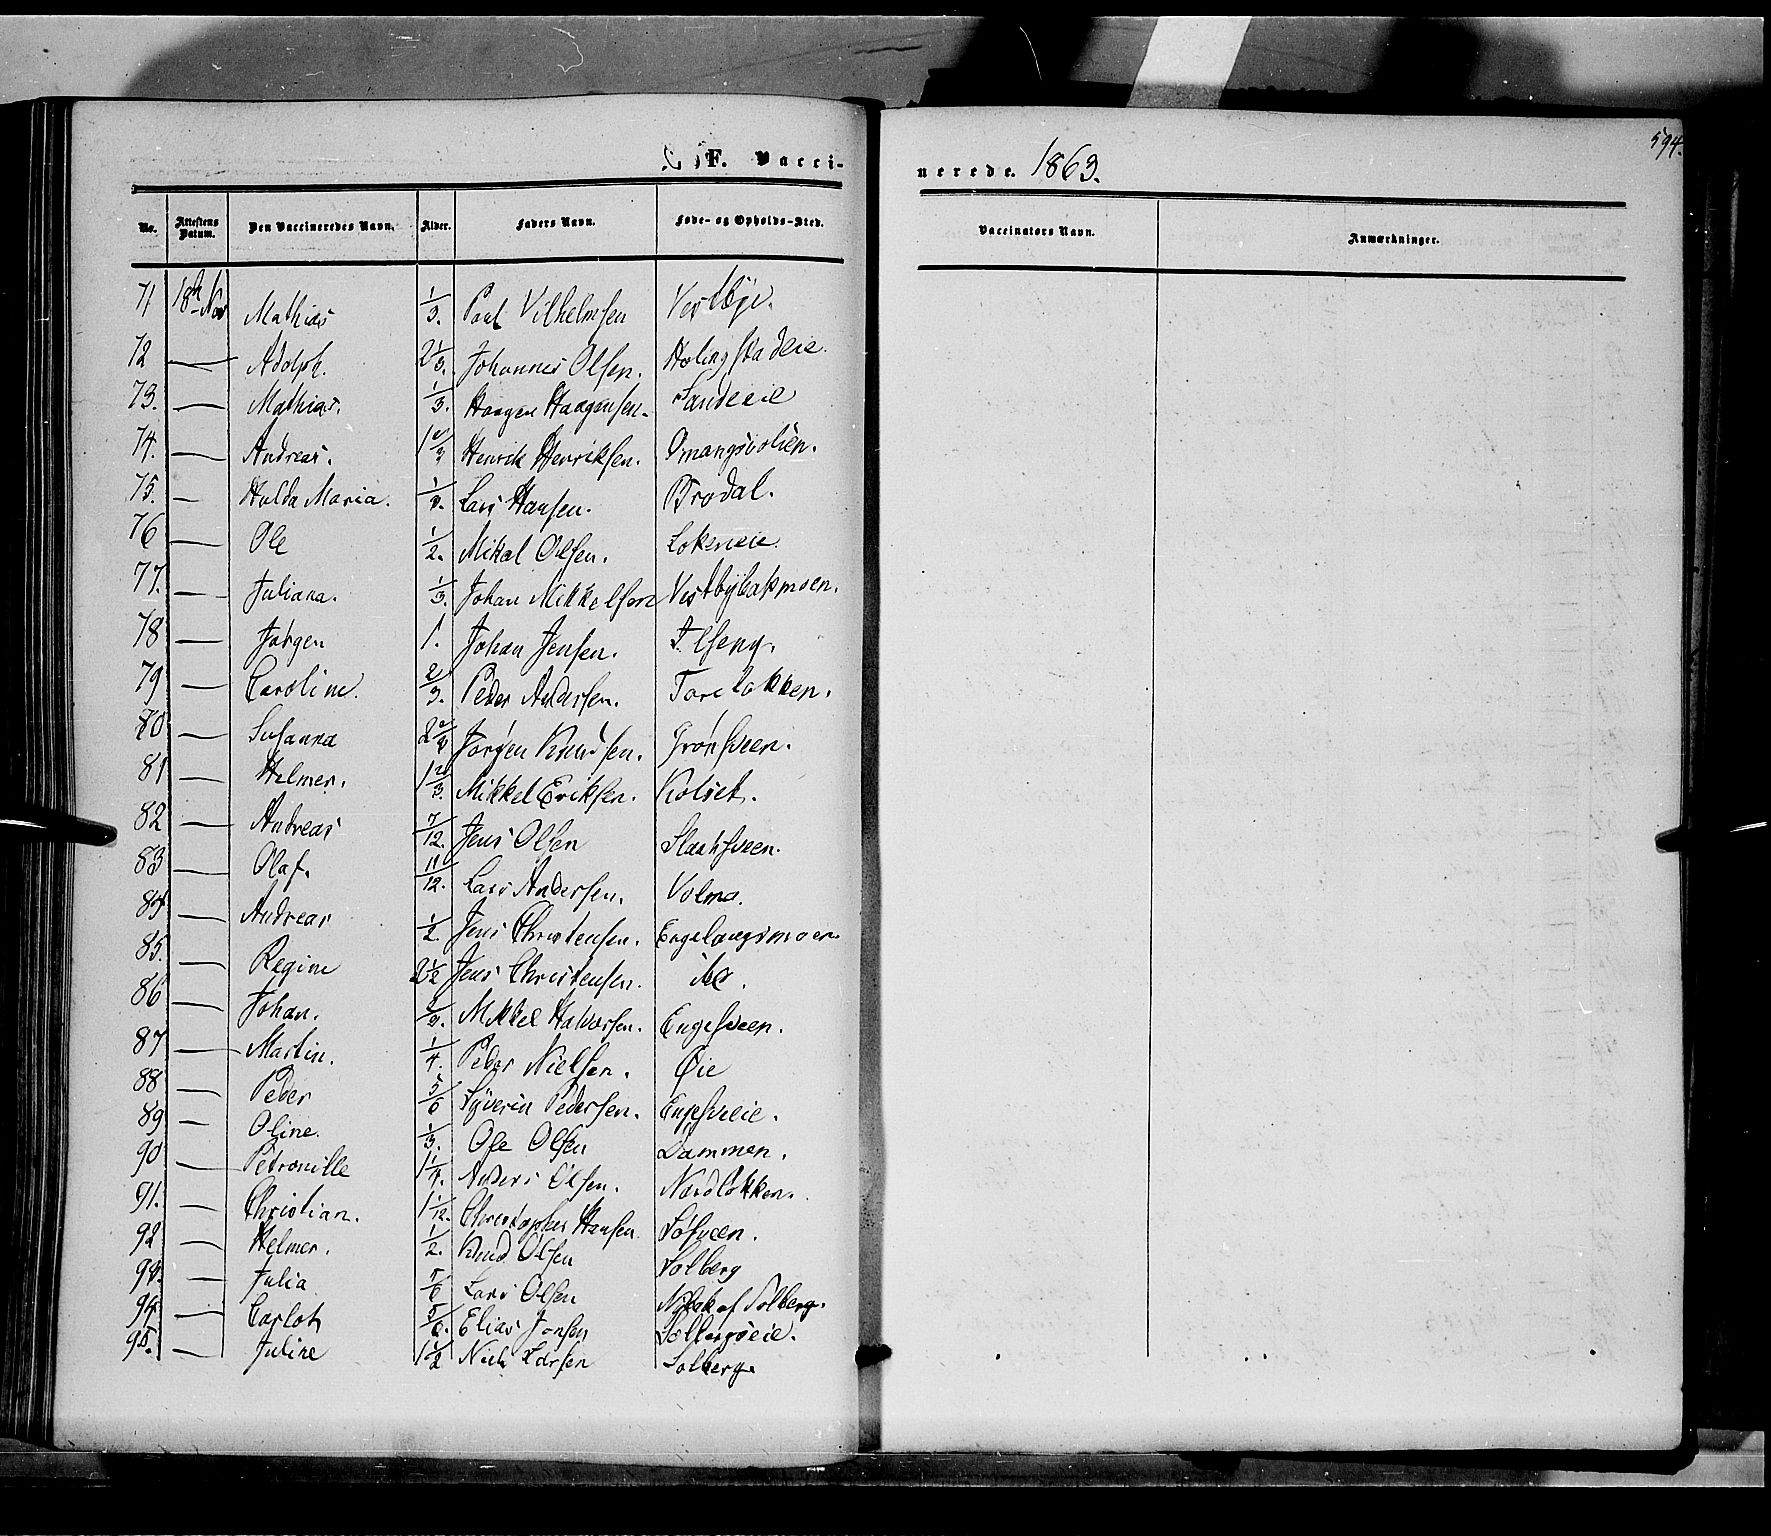 F. Vacci-
nerede. 1863.
594.
No. Attestens Datum. Den Vaccineredes Navn. Alder. Faders Navn. Føde- og Opholds-Sted. Vaccinators Navn. Anmærkninger.
71 18de Nov Mathias 1/3. Paul Vilhelmsen Vestbye.
72 — Adolph. 2 1/3. Johannes Olsen. Holingstadeie.
73. — Mathias. 1/3. Haagen Haagensen. Sandeeie
74. — Andreas. 1 2/3 Henrik Henriksen. Omangsvolien.
75. — Hulda Maria. 1/3. Lars Hansen. Brodal.
76 — Ole 1/2. Mikal Olsen. Lokeneie.
77. — Juliana. 1/3. Johan Mikkelsen Vestbybakmoen.
78 — Jørgen 1. Johan Jensen. Ilseng.
79 — Caroline. 2/3. Peder Andersen. Toreløkken.
70 — Susanna 2 2/3 Jørgen Knudsen. Grønsveen.
81 — Helmer. 1 2/3. Mikkel Eriksen. Kolset.
82 — Andreas 7/12. Jens Olsen
83 — Olaf. 11/12. Lars Andersen. Volma.
84 — Andreas 1/2. Jens Christensen. Engelaugsmoen.
85. — Regine 2 1/2 Jens Christensen. ibd.
86 — Johan. 2/3. Mikkel Halvorsen. Engesveen.
87 — Martin. 1/4. Peder Nielsen. Øie
88 — Peder 5/6 Syverin Pedersen. Engesveie.
89 — Oline. 1/3. Ole Olsen Dammen.
90 — Petronille 1 1/4. Anders Olsen. Nordløkken.
91. — Christian. 1 1/12. Christopher Hansen Søsveen.
92 — Helmer. 1/2. Knud Olsen Solberg
93. — Julia 5/6 Lars Olsen af Solberg.
94 — Carlot 5/6. Elias Jonsen Solbergseie.
95. — Juline 1 1/2 Niels Larsen Solberg.